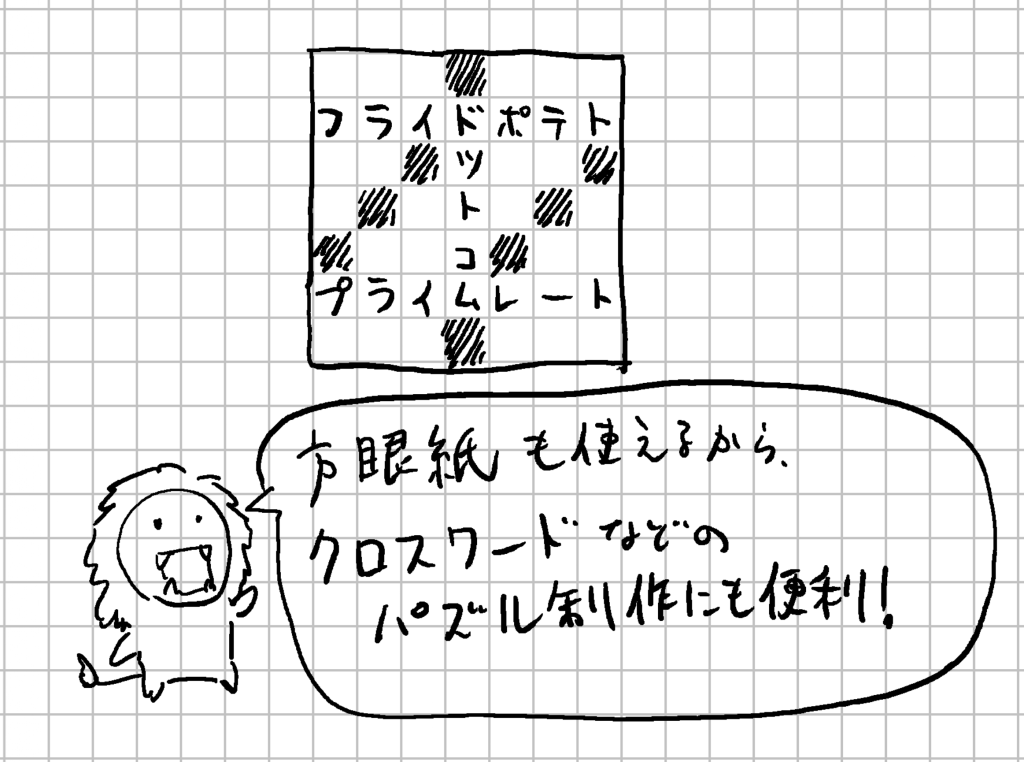 フライドポテト
ツ
ト
コ
プライムレート
方眼紙も使えるから、
クロスワードなどの
パズル制作にも便利！